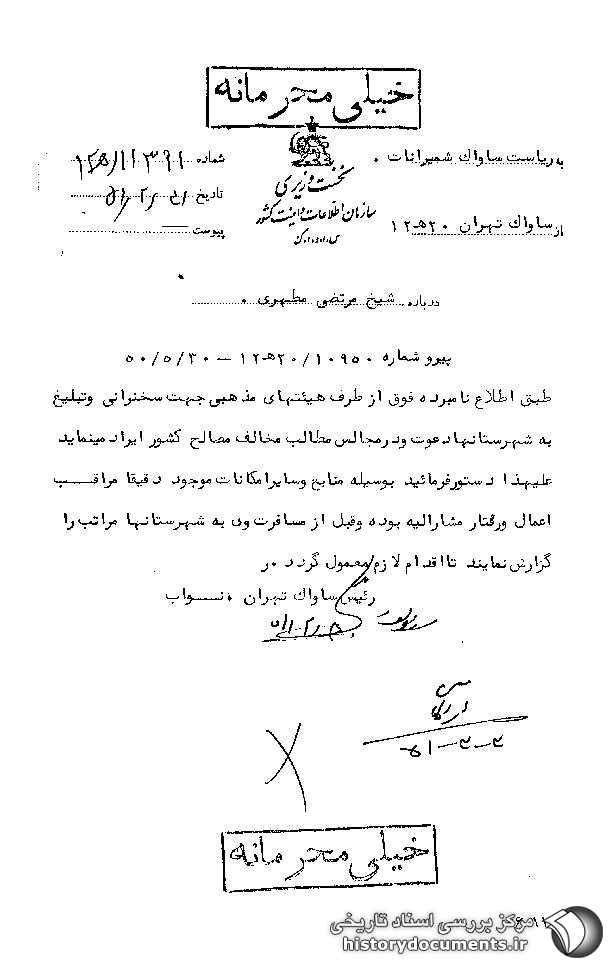 خیلی محرمانه
به ریاست ساواک شمیرانات .
شماره
نخست وزیری
سازمان اطلاعات و امنیت کشور
س.ا.و.ا.ک
تاریخ
از ساواک تهران ۲۰هـ۱۲
پیوست
درباره شیخ مرتضی مطهری .
پیرو شماره ۱۰۹۵۰/ ۲۰هـ۱۲ – ۵۰/۵/۳۰
طبق اطلاع نامبرده فوق از طرف هیئتهای مذهبی جهت سخنرانی وتبلیغ
به شهرستانها دعوت ودر مجالس مطالب مخالف مصالح کشور ایراد مینماید
علیهذا دستور فرمائید بوسیله منابع وسایر امکانات موجود دقیقا مراقبت
اعمال ورفتار مشارالیه بوده وقبل از مسافرت وی به شهرستانها مراتب را
گزارش نمایند تا اقدام لازم معمول گردد .ر
رئیس ساواک تهران . نواب
خیلی محرمانه
مرکز بررسی اسناد تاریخی
historydocuments.ir